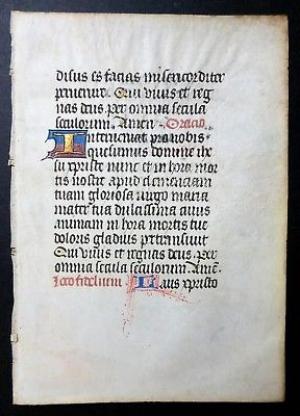 disus es facias misericorditer
peruenire. Qui viuis et reg
nas deus. per omnia secula
seculorum. Amen. Oracio.
Interueniat pro nobis
quesumus domine ihe
su xpriste nunc et in hora mor
tis nostre apud clemenciam
tuam gloriosa virgo maria
mater tua dulcissima cuius
animam in hora mortis tue
doloris gladius pertransiuit
Qui viuis et regnas deus. per
omnia secula seculorum. Amē.
fidelium Laus xpristo